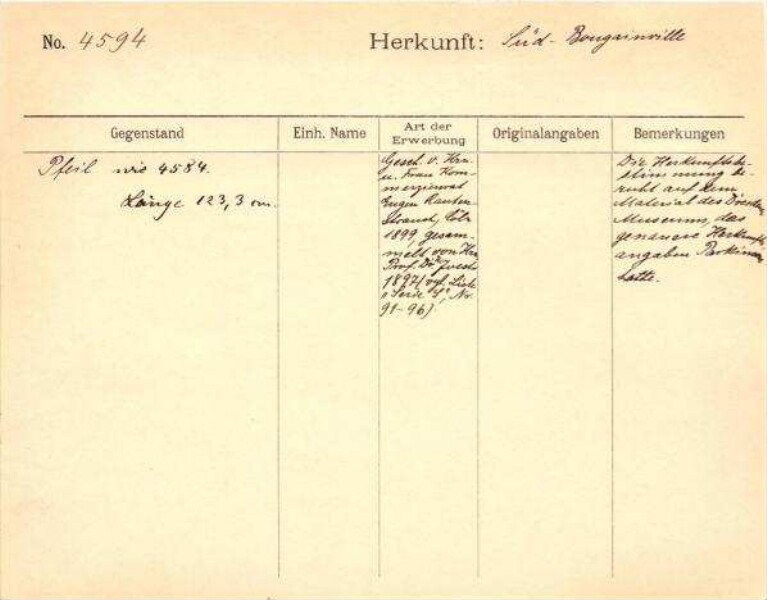 No. 4594
Herkunft: Süd-Bougainville
Gegenstand
Einh. Name
Art der
Erwerbung
Originalangaben
Bemerkungen
Pfeil wie 4584.
Länge 123,3 cm.
Gesch. v. Hrn
u. Frau Kom-
merzienrat
Eugen Rauten-
strauch, Cöln
1899, gesam-
melt von Hrn
Prof. Dr. Joest
1897 (vgl. Liste
Serie Nr.
91-96).
Die Herkunftsbe-
stimmung be-
ruht auf dem
Material des Dresden
Museums, das
genauere Herkunfts-
angaben Parkinsons
hatte.